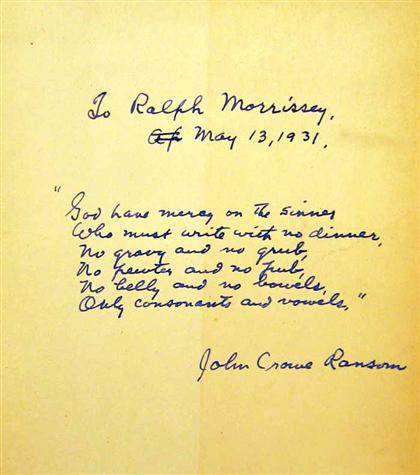 To Ralph Morrissey,
Ap May 13, 1931.
"God have mercy on the sinner
Who must write with no dinner,
No gravy and no grub,
No pewter and no pub,
No belly and no bowels,
Only consonants and vowels."
John Crowe Ransom